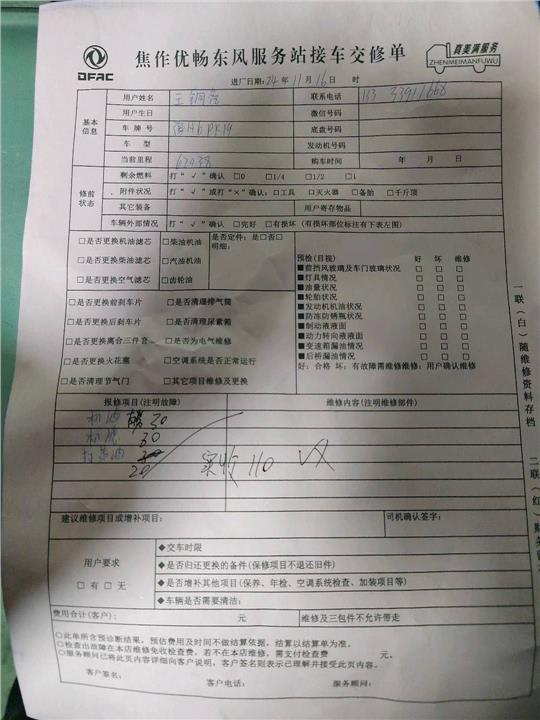 DFAC
焦作优畅东风服务站接车交修单
真美满服务
ZHENMEIMANFUWU
进厂日期：24年11月16日 时
基本信息
用户姓名 王
联系电话 133
用户生日
微信号码
车牌号
底盘号码
车型
发动机号码
当前里程
购车时间 年 月 日
修前状态
剩余燃料 打“√”确认 □0 □1/4 □1/2 □1
附件状况 打“√”或打“×”确认：□工具 □灭火器 □备胎 □千斤顶
其它装备
用户寄存物品
车辆外部情况 打“√”确认 □完好 □有损坏（有损坏部位标注有下表左图）
□是否更换机油滤芯
□是否更换柴油滤芯
□是否更换空气滤芯
□柴油机油
□汽油机油
□齿轮油
是否定件：是□否□
明细：
□是否更换前刹车片
□是否清理排气筒
□是否更换后刹车片
□是否清理尿素箱
□是否更换离合三件套
□是否为电气维修
□是否更换火花塞
□空调系统是否正常运行
□是否清理节气门
□其它项目维修及更换
预检(目视) 好 坏 维修
■前挡风玻璃及车门玻璃状况 □ □ □
■灯具情况 □ □ □
■油量状况 □ □ □
■轮胎状况 □ □ □
■发动机机油状况 □ □ □
■防冻防锈瓶状况 □ □ □
■制动液液面 □ □ □
■动力转向液液面 □ □ □
■变速箱漏油情况 □ □ □
■后桥漏油情况 □ □ □
好：合格 坏：有故障需维修维修：用户确认维修
报修项目(注明故障)
维修内容(注明维修部件)
机油 30
机滤 30
20
实收 110
建议维修项目或增补项目：
司机确认签字：
用户要求
□有 □无
◆交车时限
◆是否归还更换的备件(保修项目不退还旧件)
◆是否增补其他项目(保养、年检、空调系统检查、加装项目等)
◆车辆是否需要清洁：
费用合计(客户)： 元
维修及三包件不允许带走
○此单所含预诊断结果，预估费用及时间不做结算依据，结算以结算单为准。
○检查出故障在本店维修免收检查费，若不在本店维修，需支付检查费 元。
○服务顾问已将此页内容详细向客户说明，客户签名则表示已理解并接受此页内容。
客户签名： 客户电话： 服务顾问：
一联（白）随维修资料存档
二联（红）